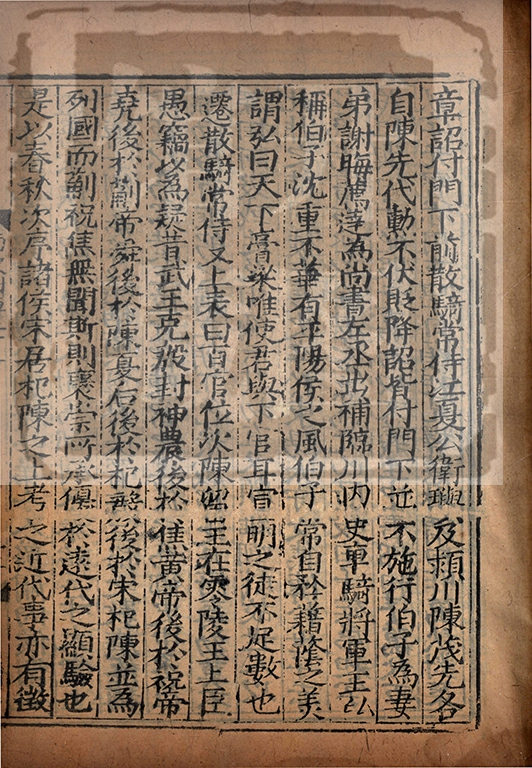 章詔付門下前散騎常侍江夏公衛璵及潁川陳茂先各
自陳先代勳不伏貶降詔皆付門下並不施行伯子為妻
弟謝晦薦達為尚書左丞出補臨川內史車騎將軍王弘
稱伯子沈重不華有平陽侯之風伯子常自矜蔭籍之美
謂弘曰天下膏粱唯使君與下官耳宣明之徒不足數也
遷散騎常侍又上表曰百官位次陳留王在零陵王上臣
愚竊以為疑昔武王克殷封神農後於焦黃帝後於祝帝
堯後於薊帝舜後於陳夏后後於杞殷後於宋杞陳並為
列國而薊祝焦無聞斯則襃崇所承優於遠代之顯驗也
是以春秋次序諸侯宋居杞陳之上考之近代事亦有徵